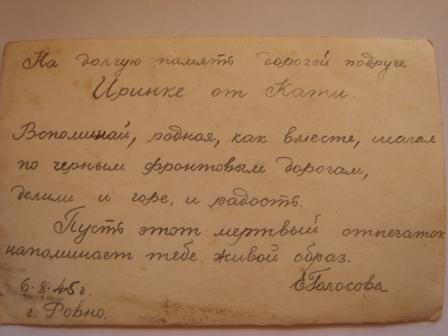 На долгую память дорогой подруге
Иринке от Кати.
Вспоминай, родная, как вместе, шагая
по черным фронтовым дорогам,
делили и горе, и радость.
Пусть этот мертвый отпечаток
напоминает тебе живой образ.
6.8.45 г.
ЕГолосова
г. Ровно.